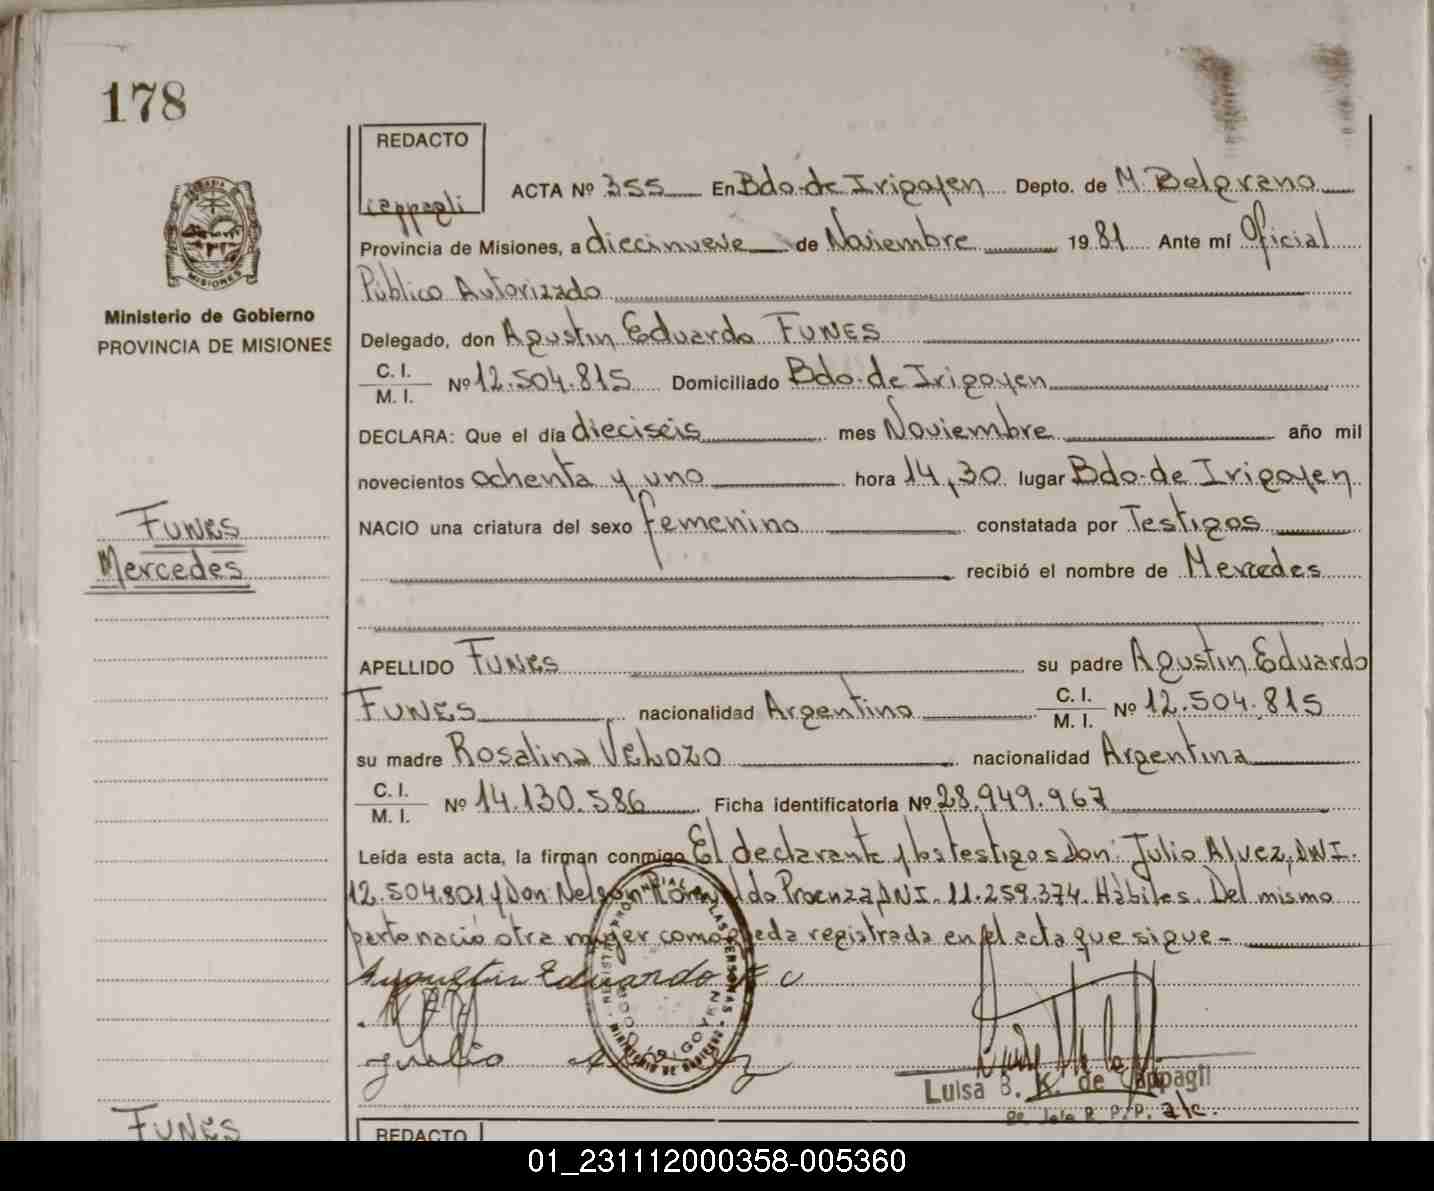 178
REDACTO
Cappagli
ACTA Nº 355 En Bdo. de Irigoyen Depto. de M. Belgrano
Provincia de Misiones, a diecinueve de Noviembre 1981 Ante mí Oficial
Público Autorizado
Delegado, don Agustín Eduardo FUNES
C. I.
M. I. Nº 12.504.815 Domiciliado Bdo. de Irigoyen
DECLARA: Que el día dieciseis mes Noviembre año mil
novecientos ochenta y uno hora 14,30 lugar Bdo. de Irigoyen
NACIO una criatura del sexo femenino constatada por Testigos
recibió el nombre de Mercedes
APELLIDO FUNES su padre Agustín Eduardo
FUNES nacionalidad Argentino C. I.
M. I. Nº 12.504.815
su madre Rosalina VELOZO nacionalidad Argentina
C. I.
M. I. Nº 14.130.586 Ficha identificatoria Nº 28.949.967
Leída esta acta, la firman conmigo El declarante y los testigos Don: Julio Alvez, DNI.
12.504.801 y Don Nelson Proenza, DNI. 11.259.374. Hábiles. Del mismo
parto nació otra mujer como queda registrada en el acta que sigue-
Eduardo
Julio
Luisa B. K. de Cappagli
a/c.
MINISTERIO DE GOBIERNO
Ministerio de Gobierno
PROVINCIA DE MISIONES
MISIONES
FUNES
Mercedes
FUNES
REDACTO
01_231112000358-005360